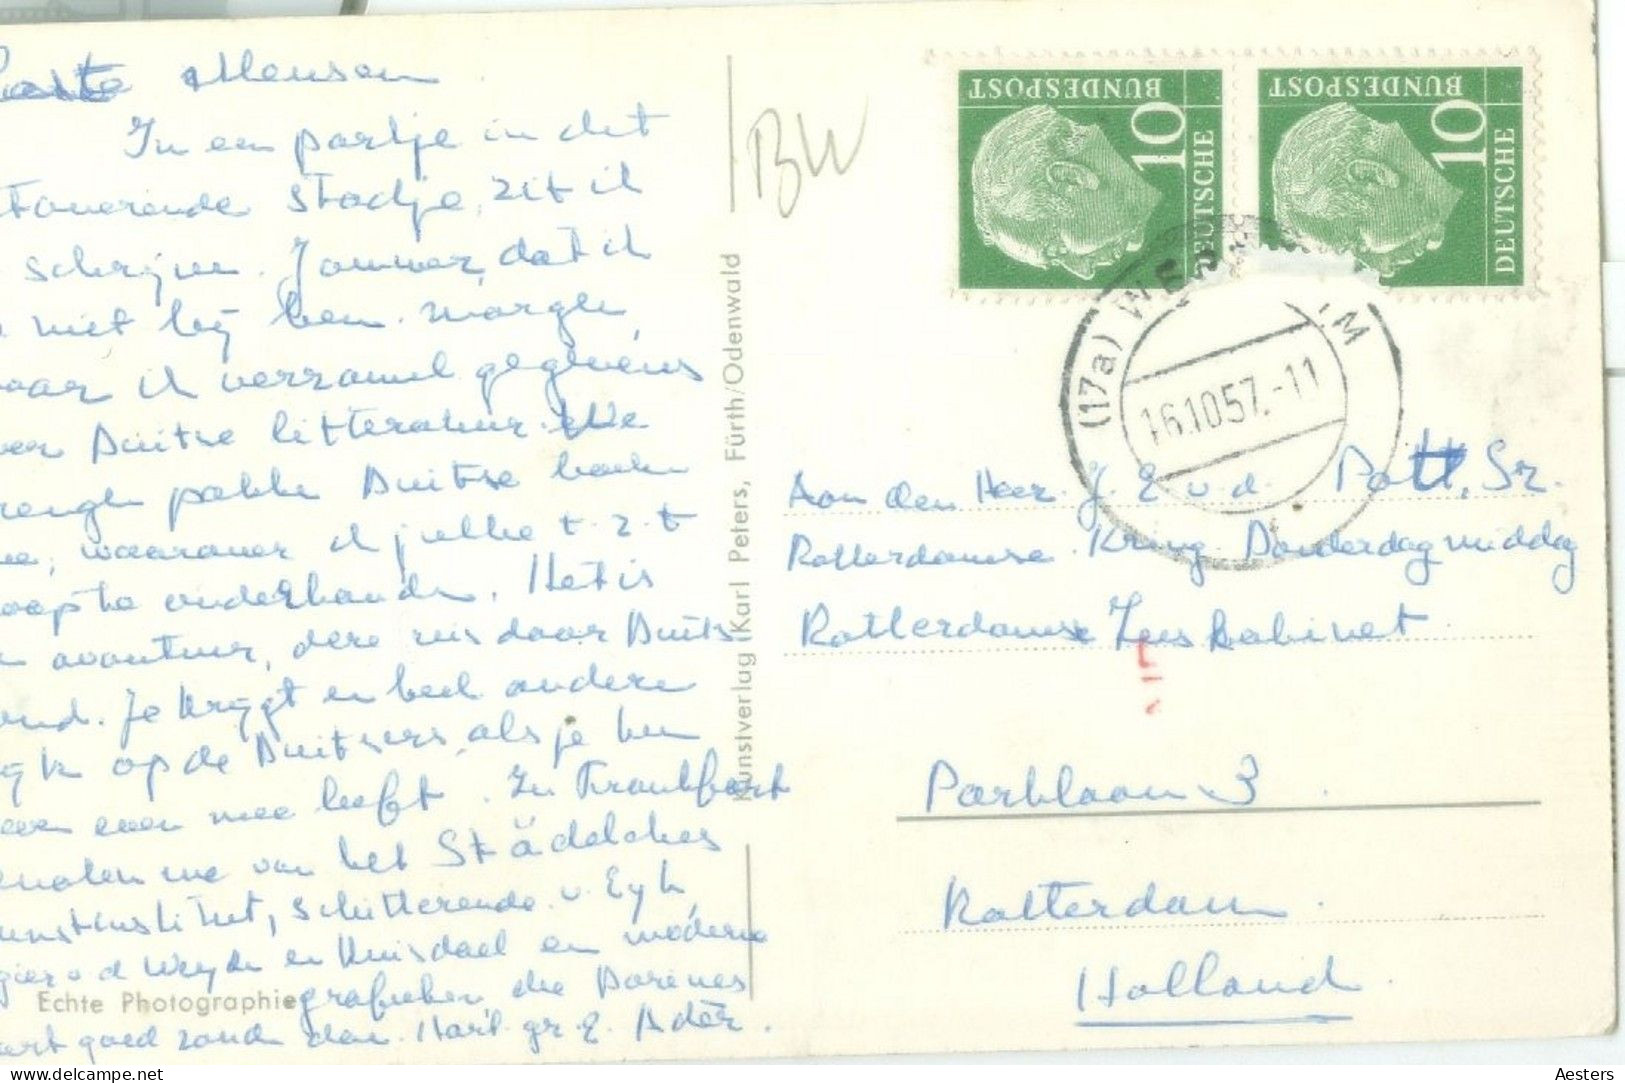 Mensen
In een parkje in dit
stadje, zit ik
schrijven. Jammer, dat ik
niet bij ben. morgen,
waar ik verzamel gegevens
Duitse litteratuur. We
pakken Duitse boeken
mee, waarover ik jullie t.z.t
hoop te onderhouden. Het is
avontuur, deze reis door Duits
land. Je krijgt en heel andere
kijk op de Duitsers, als je hen
even mee leeft. In Frankfort
genoten we van het Städelches
Kunstinstitut, schitterende v. Eyk,
Rogier v d Weyde en Ruisdael en moderne
grafieken die Barines
goed zond den. Hart. gr. E. Adèr.
Echte Photographie
Kunstverlag Karl Peters, Fürth/Odenwald
BW
10
DEUTSCHE
BUNDESPOST
10
DEUTSCHE
BUNDESPOST
(17a) WE IM
16.10.57.-11
Aan den Heer J. E v.d. Pott, Sr.
Rotterdamse Kring Donderdagmiddag
Rotterdamse Leeskabinet
Parklaan 3
Rotterdam.
Holland.
delcampe.net
Aesters